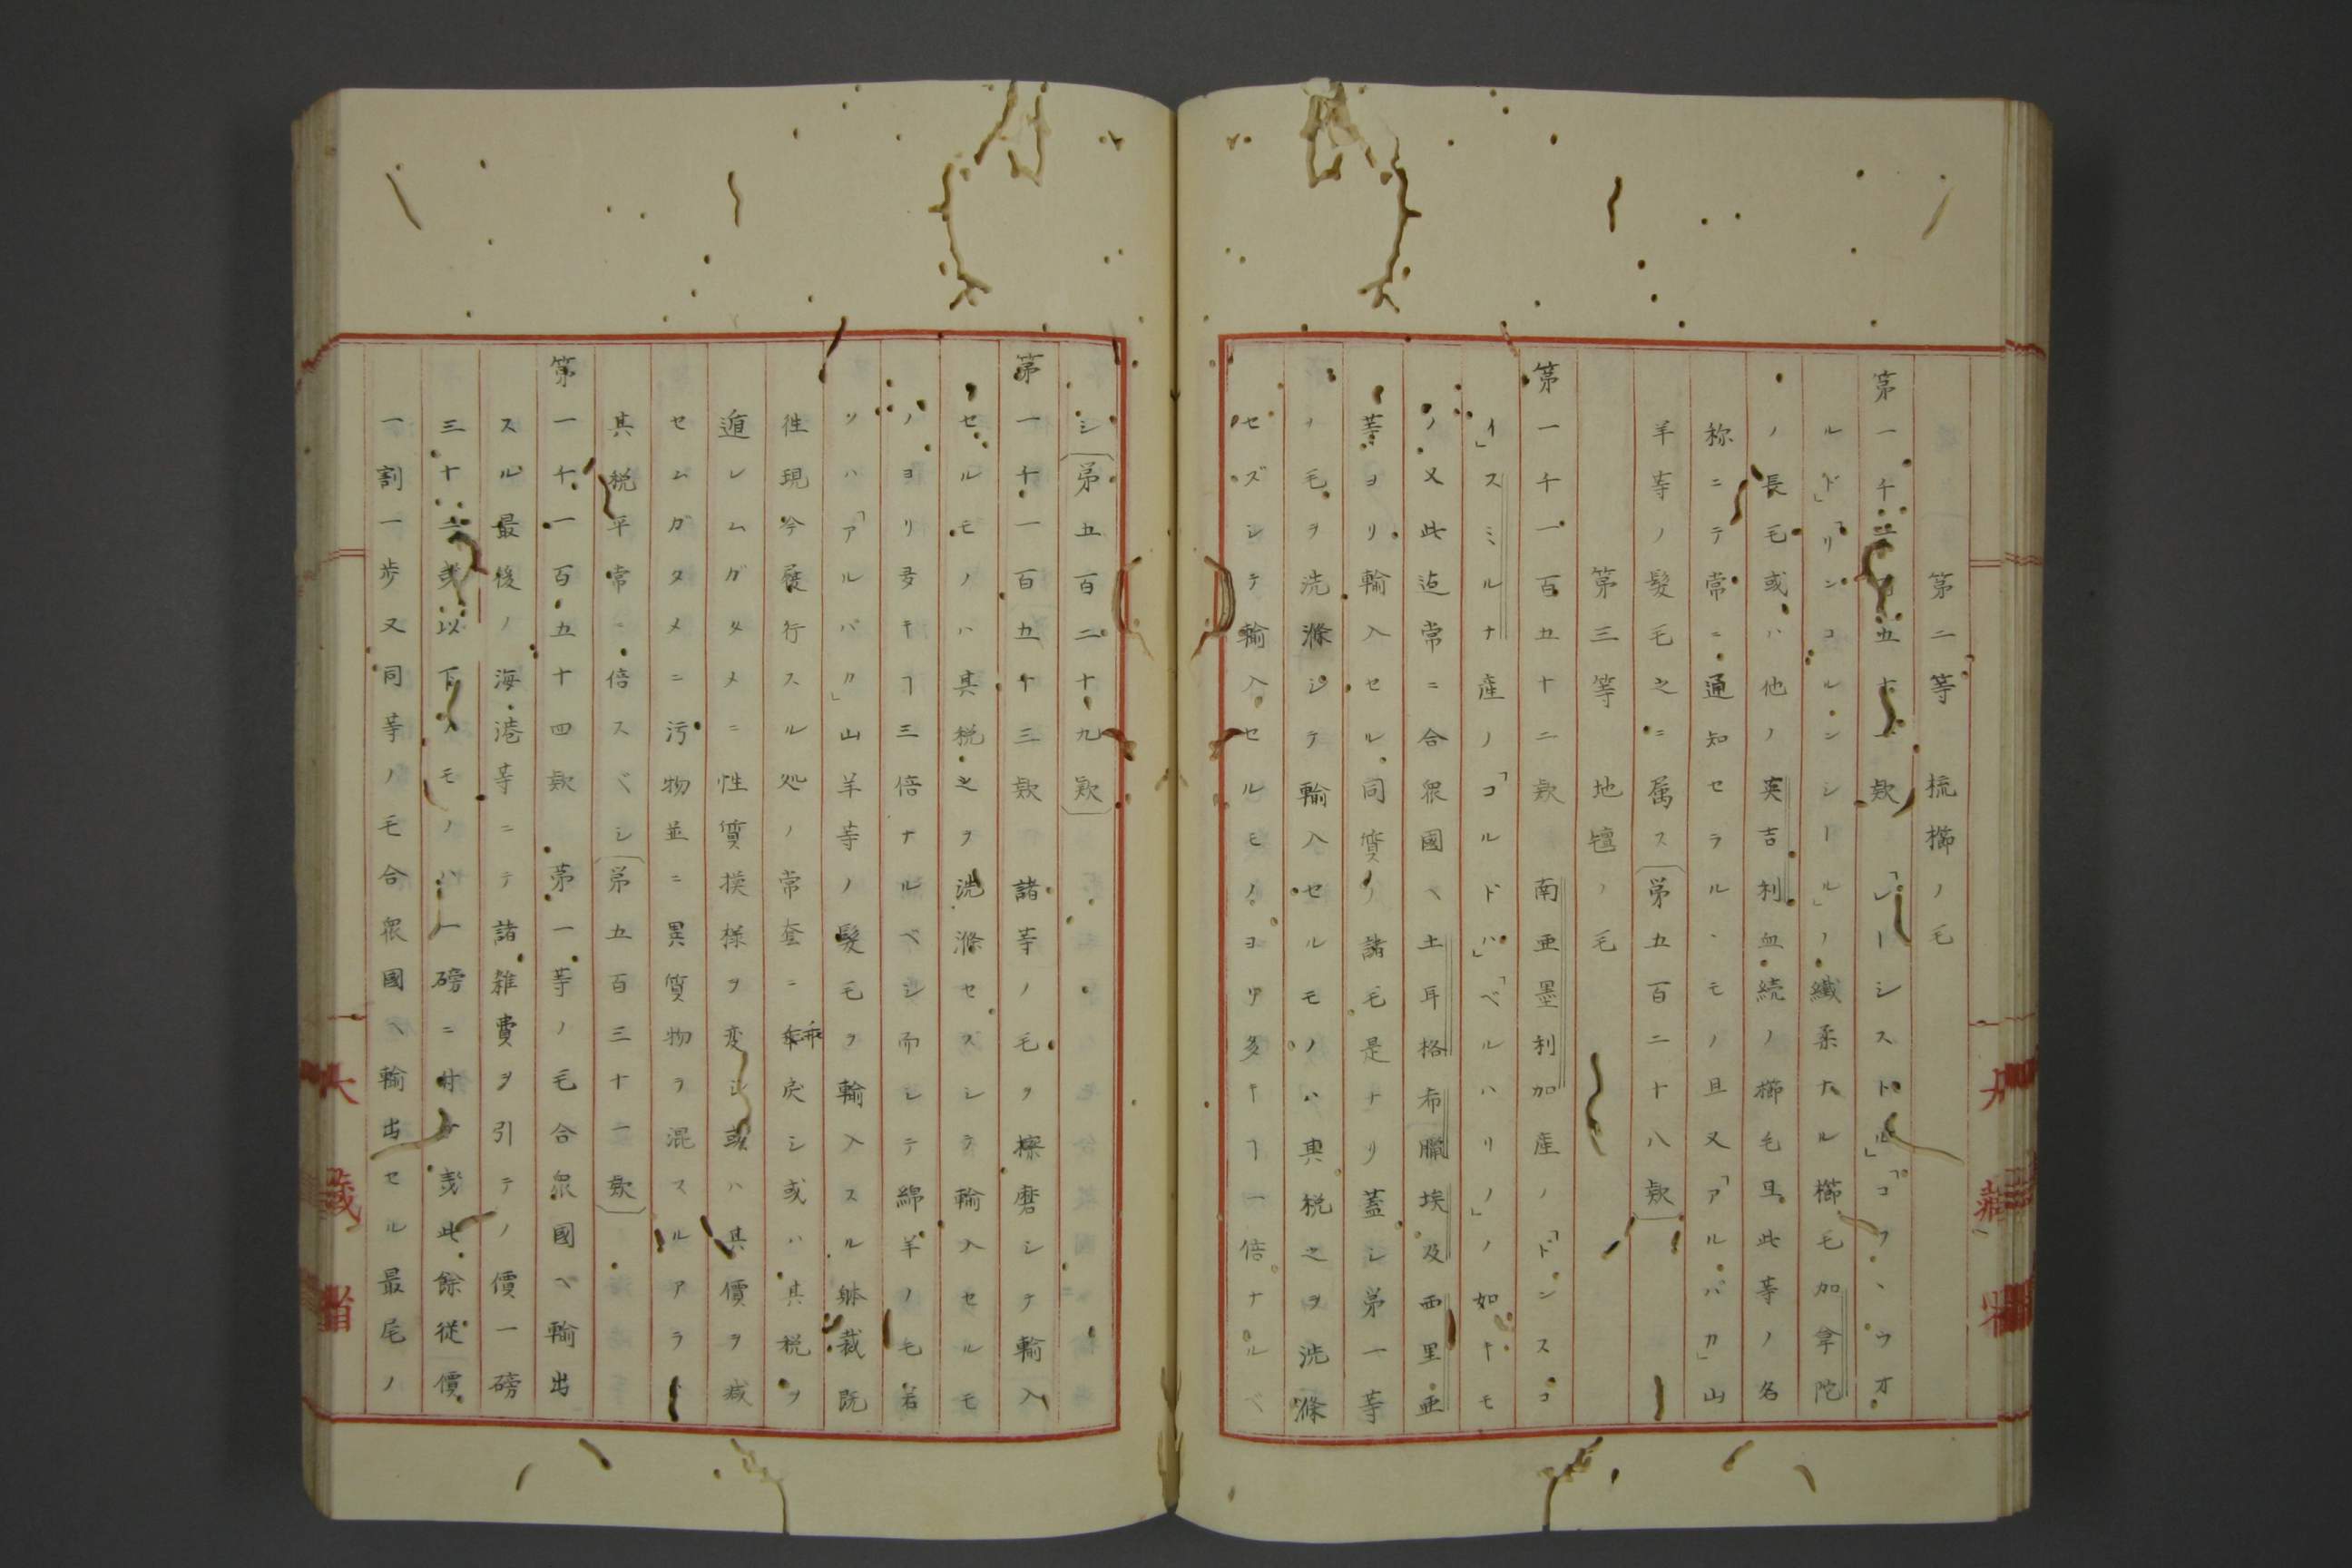 第二等 梳櫛ノ毛
第一千百五十一欵 「レーシストル」「コツヽウオ
ルド」「リンコルンシール」ノ纎柔ナル櫛毛加拿陀
ノ長毛或ハ他ノ英吉利血続ノ櫛毛且此等ノ名
称ニテ常ニ通知セラルヽモノ且又「アルパカ」山
羊等ノ髪毛之ニ属ス(第五百二十八欵)
第三等 地氊ノ毛
第一千一百五十二欵 南亜墨利加産ノ「ドンスコ
イ」スミルナ産ノ「コルドハ」「ベルハリノ」ノ如キモ
ノ又此迠常ニ合衆國ヘ土耳格布臘埃及西里亜
等ヨリ輸入セル同質ノ諸毛是ナリ蓋シ第一等
ノ毛ヲ洗滌シテ輸入セルモノハ輿税之ヲ洗滌
セズシテ輸入セルモノヨリ多キヿ一倍ナルベ
シ(第五百二十九欵)
第一千一百五十三欵 諸等ノ毛ヲ擦磨シテ輸入
セルモノハ其税之ヲ洗滌セスシテ輸入セルモ
ノヨリ多キヿ三倍ナルベシ而シテ綿羊ノ毛若
ソハ「アルパカ」山羊等ノ髪毛ヲ輸入スル躰裁既
徃現今履行スル処ノ常套ニ乖戻シ或ハ其税ヲ
遁レムガタメニ性質摸様ヲ変シ或ハ其價ヲ减
セムガタメニ汚物並ニ異質物ヲ混スルアラハ
其税平常ニ倍スベシ(第五百三十一欵)
第一千一百五十四欵 第一等ノ毛合衆國ヘ輸出
スル最後ノ海港等ニテ諸雑費ヲ引テノ價一磅
三十二或以下ノモノハ一磅ニ付十或此餘従價
一割一歩又同等ノ毛合衆國ヘ輸出セル最尾ノ
大藏省